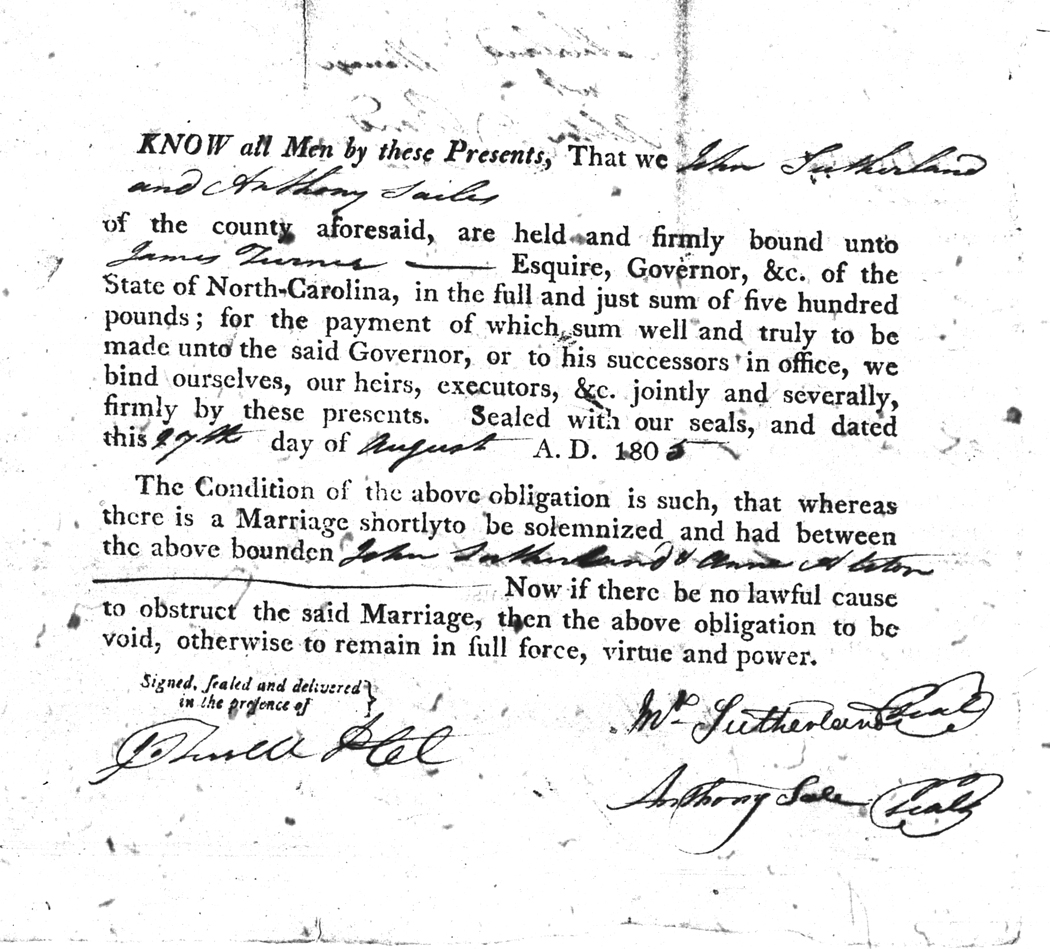 KNOW all Men by these Presents, That we John Sutherland
and Anthony Sailes
of the county aforesaid, are held and firmly bound unto
James Turner Esquire, Governor, &c. of the
State of North-Carolina, in the full and just sum of five hundred
pounds; for the payment of which sum well and truly to be
made unto the said Governor, or to his successors in office, we
bind ourselves, our heirs, executors, &c. jointly and severally,
firmly by these presents. Sealed with our seals, and dated
this 27th day of August A. D. 1805
The Condition of the above obligation is such, that whereas
there is a Marriage shortlyto be solemnized and had between
the above bounden John Sutherland & Ann Alston
Now if there be no lawful cause
to obstruct the said Marriage, then the above obligation to be
void, otherwise to remain in full force, virtue and power.
Signed, sealed and delivered
in the presence of
Sutherland Seal
Anthony Sale Seal